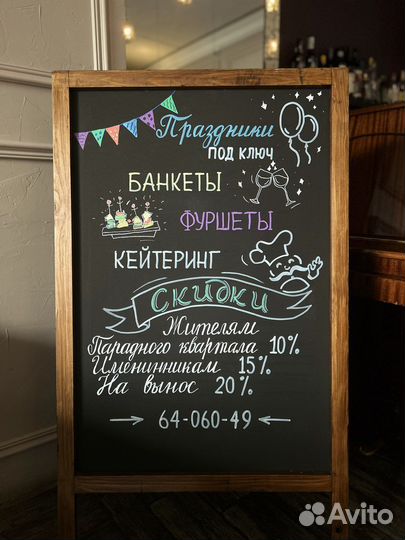 Праздники
ПОД КЛЮЧ
БАНКЕТЫ
ФУРШЕТЫ
КЕЙТЕРИНГ
Скидки
Жителям
Парадного квартала 10%
Именинникам 15%
На вынос 20%
64-060-49
Avito